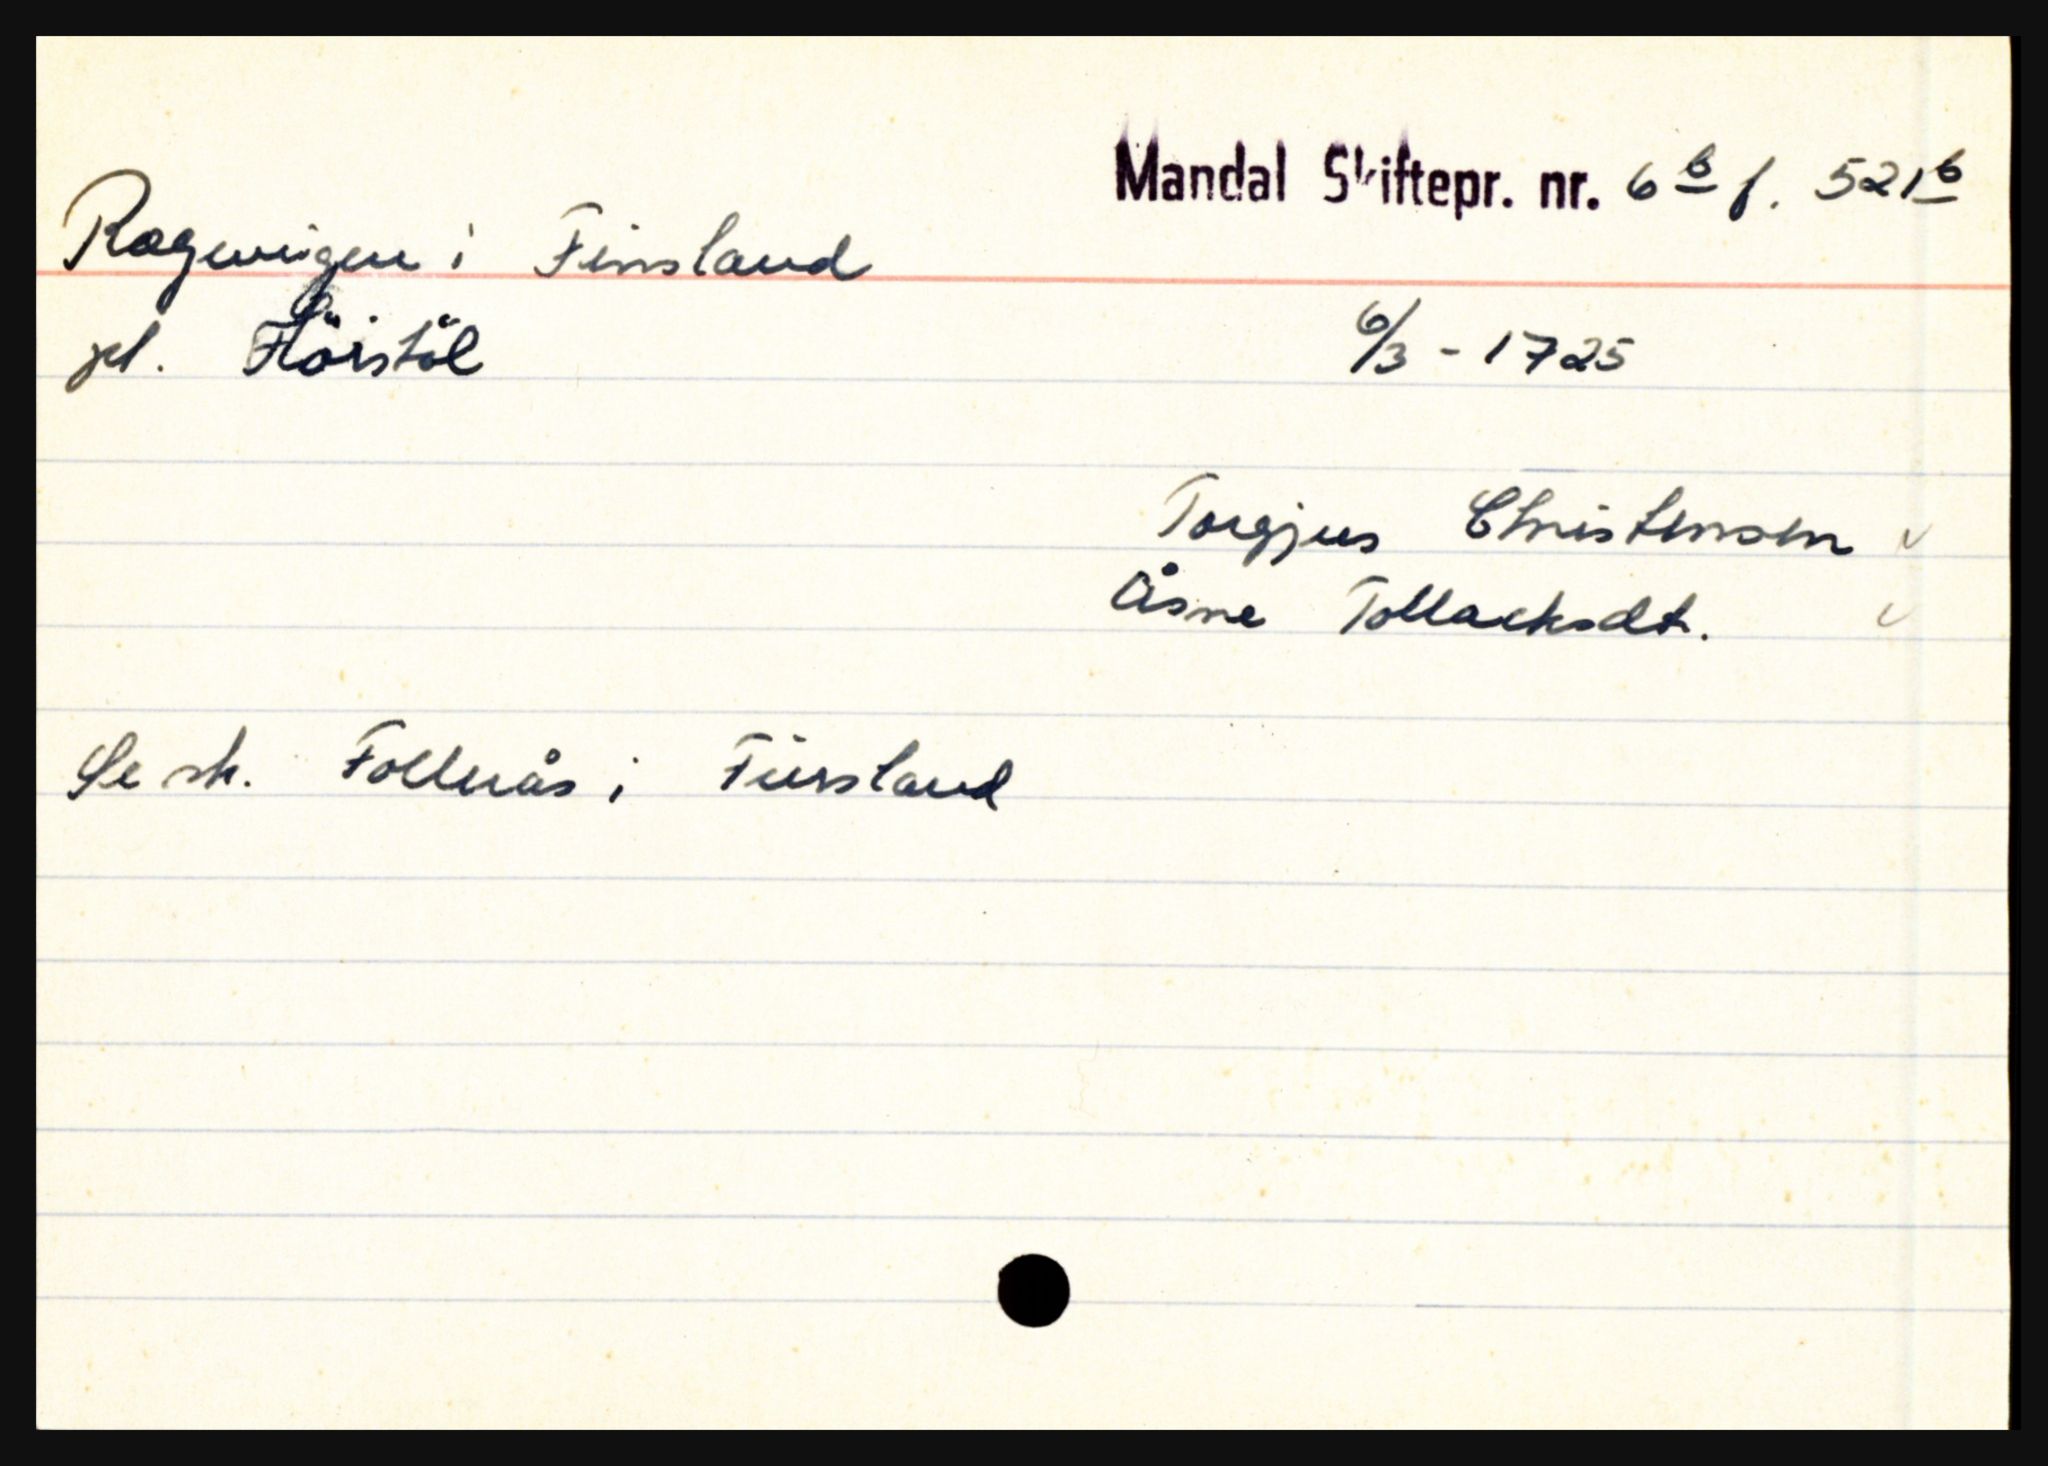 Mandal Skiftepr. nr. 6b f. 521b
i Finsland
gl. Flörstöl
6/3 - 1725
Torgjus Christensen
Åsne Tollacksdt.
Se sk. Follnås i Finsland